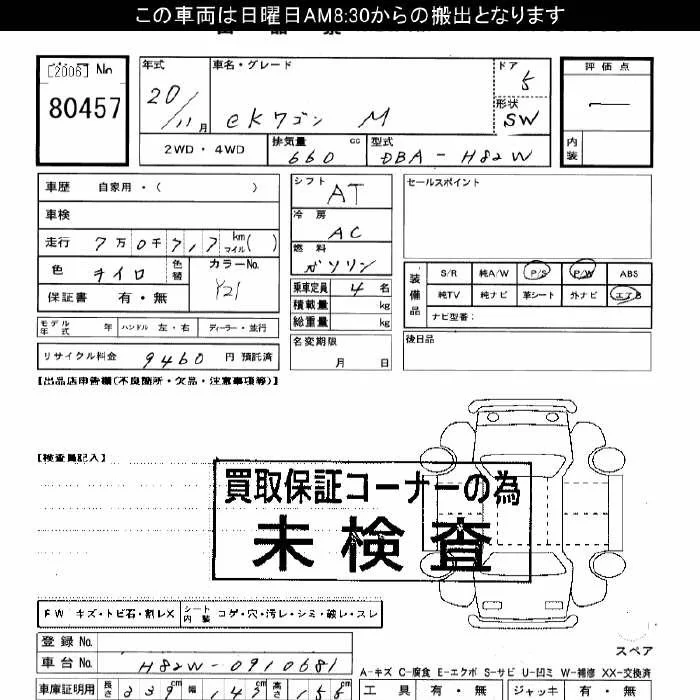 この車両は日曜日AM8:30からの搬出となります
[2006] No
80457
年式 20/11月
車名・グレード eKワゴン M
ドア 5
形状 SW
2WD・4WD
排気量 660 cc
型式 DBA-H82W
評価点 —
内装
車歴 自家用・( )
車検
走行 7万0千717 km マイル( )
色 キイロ
色替
カラーNo. Y21
保証書 有・無
モデル年式 年 ハンドル 左・右 ディーラー・並行
リサイクル料金 9460 円 預託済
シフト AT
冷房 AC
燃料 ガソリン
乗車定員 4名
積載量 kg
総重量 kg
名変期限 月 日
セールスポイント
装備品
S/R 純A/W P/S P/W ABS
純TV 純ナビ 革シート 外ナビ エアB
ナビ型番:
後日品
【出品店申告欄(不良箇所・欠品・注意事項等)】
【検査員記入】
買取保証コーナーの為
未検査
FW キズ・トビ石・割レX
シート内装 コゲ・穴・汚レ・シミ・破レ・スレ
登録No.
車台No. H82W-0910681
スペア
A-キズ C-腐食 E-エクボ S-サビ U-凹ミ W-補修 XX-交換済
車庫証明用 長さ 339cm 幅 147cm 高さ 155cm
工具 有・無 ジャッキ 有・無